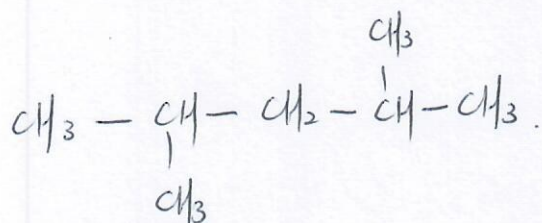 CH3
CH3 — CH — CH2 — CH — CH3.
CH3